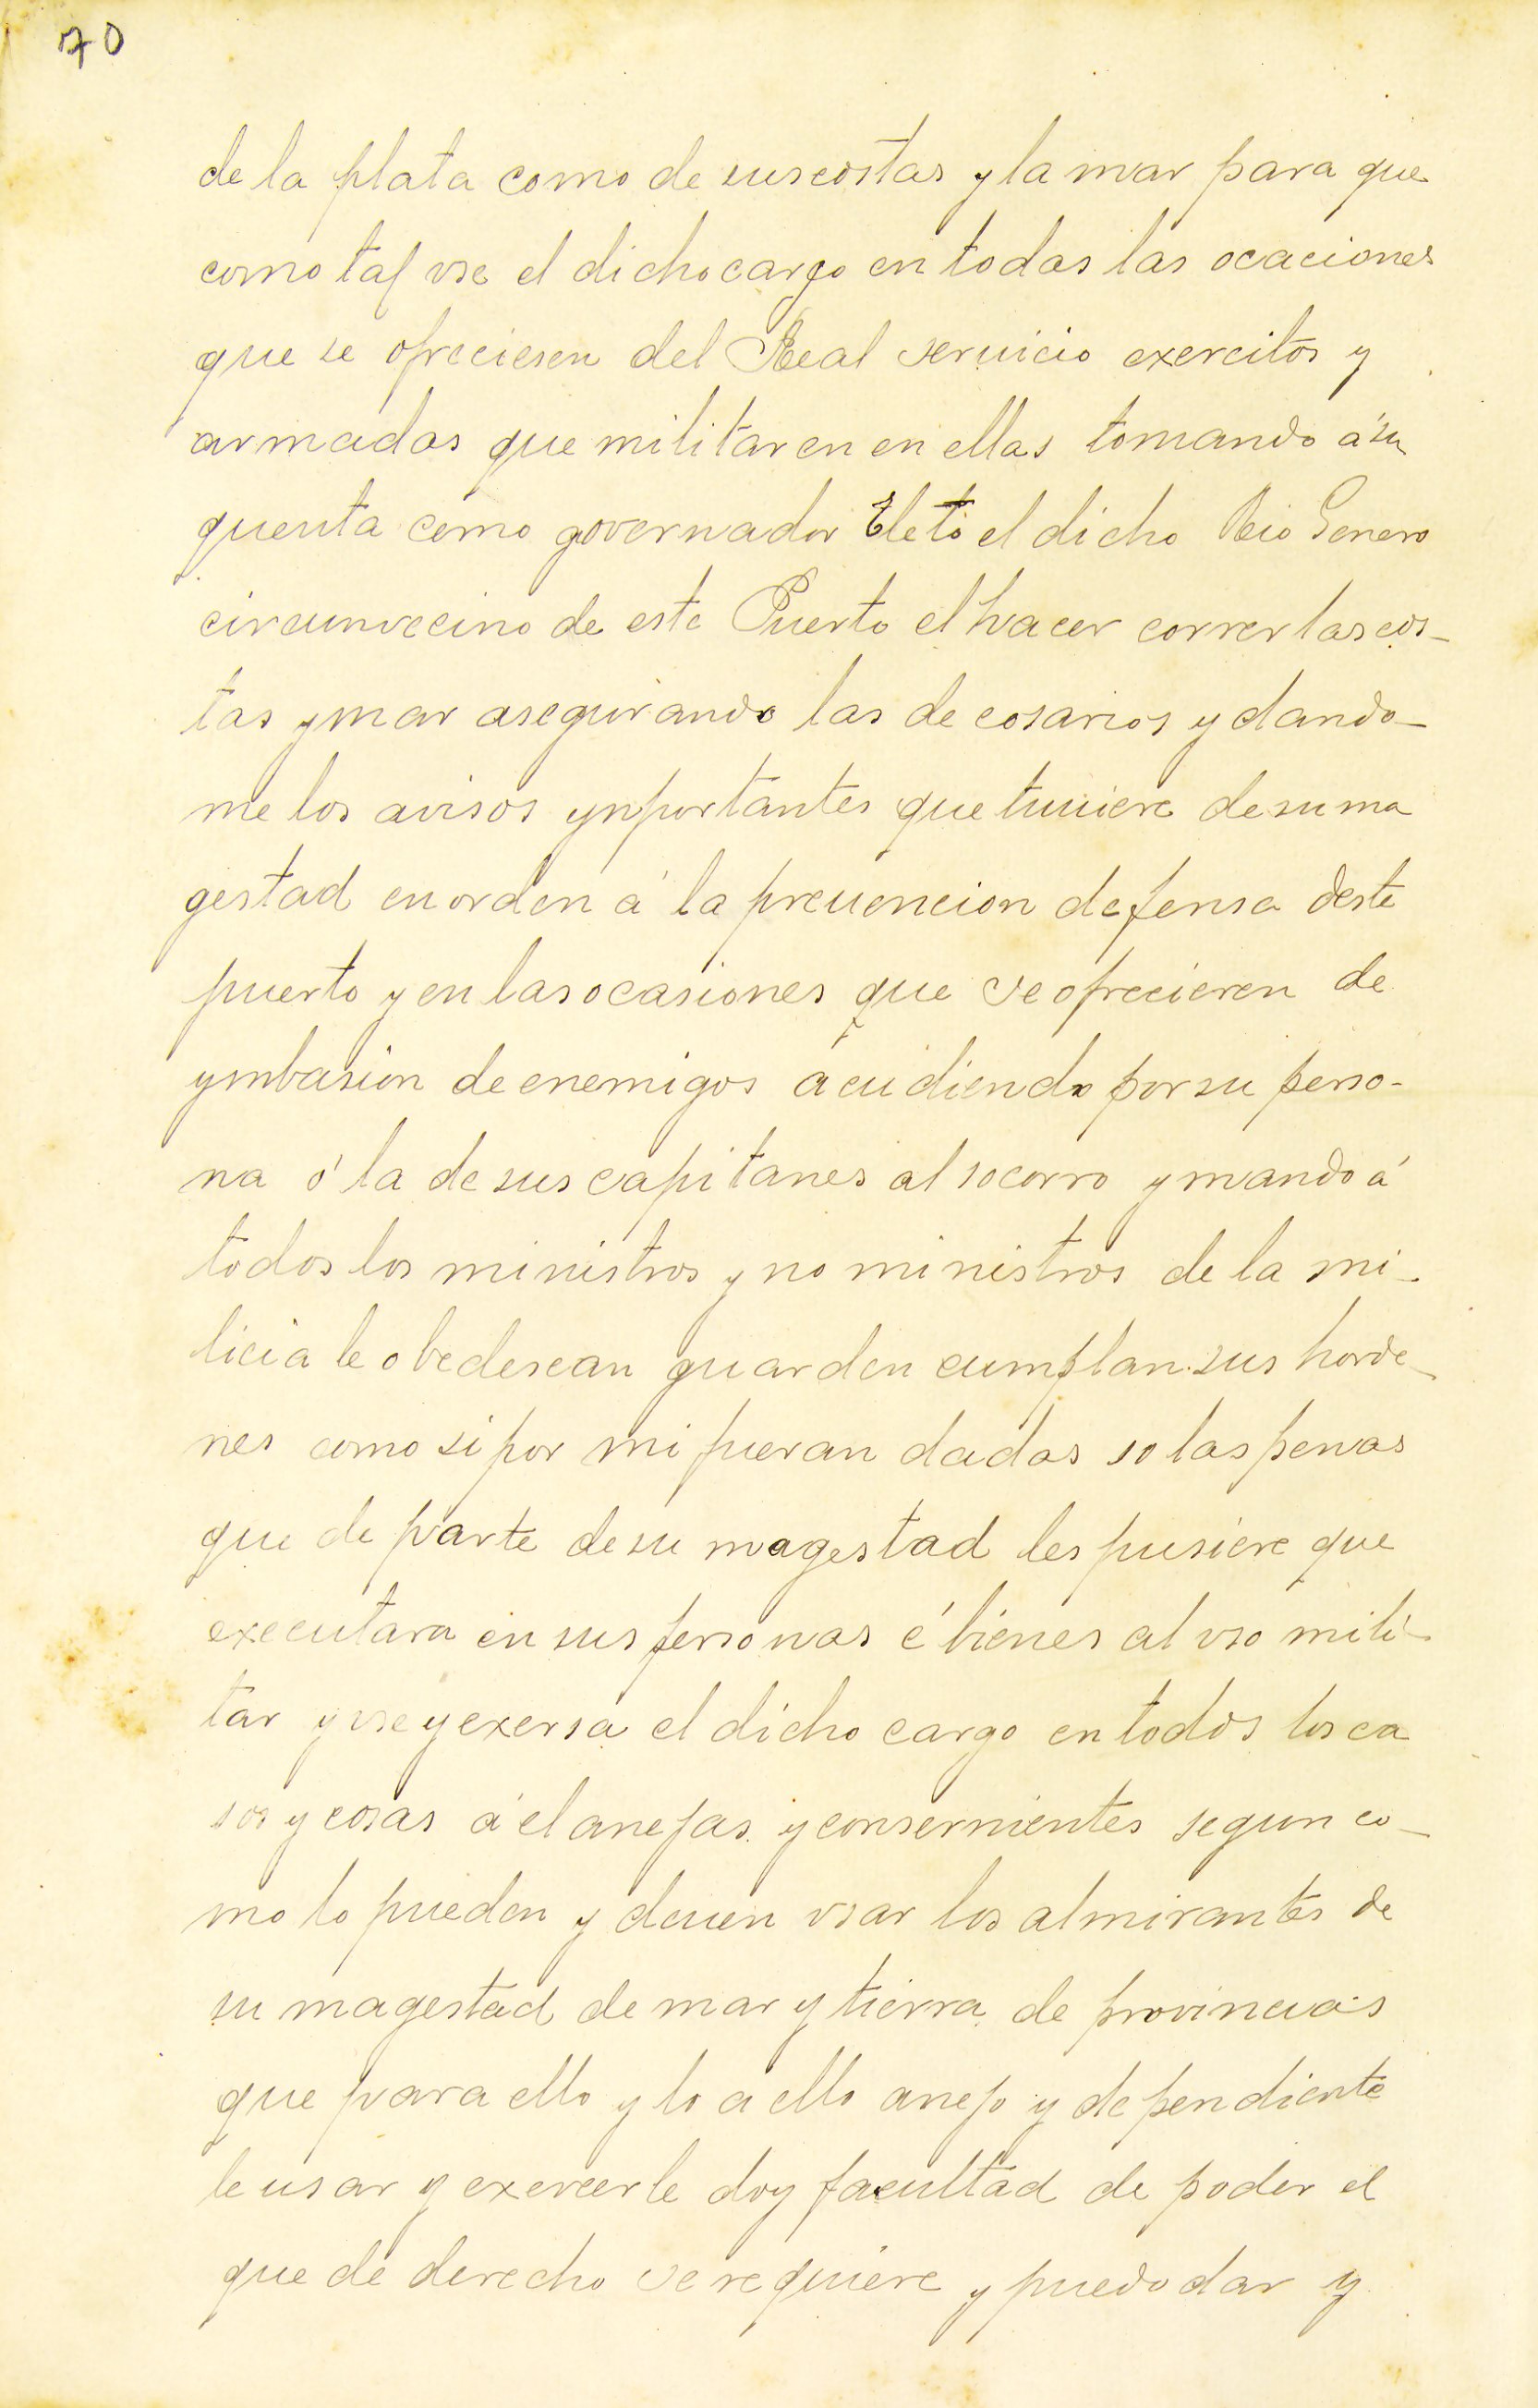 70
de la plata como de sus costas y la mar para que
como tal vse el dicho cargo en todas las ocaciones
que se ofreciesen del Real seruicio exercitos y
armadas que militaren en ellas tomando á su
quenta como governador Eleto el dicho Rio Genero
circunvecino de este Puerto el hacer correr las cos_
tas y mar asegurando las de cosarios y dando_
me los avisos ynportantes que tuuiere de su ma
gestad en orden á la preuencion defensa deste
puerto y en las ocasiones que se ofrecieren de
ymbasion de enemigos ácudiendo por su perso-
na ó la de sus capitanes al socorro y mando á
todos los ministros y no ministros de la mi_
licia le obedescan guarden cumplan sus horde_
nes como si por mi fueran dadas so las penas
que de parte de su magestad les pusiere que
executara en sus personas é bienes al vso mili_
tar y vse y exersa el dicho cargo en todos los ca
sos y cosas á el anejas y consernientes segun co_
mo lo pueden y deuen vsar los almirantes de
su magestad de mar y tierra de provincias
que para ello y lo a ello anejo y dependiente
le usar y exercerle doy facultad de poder el
que de derecho se requiere y puedo dar y